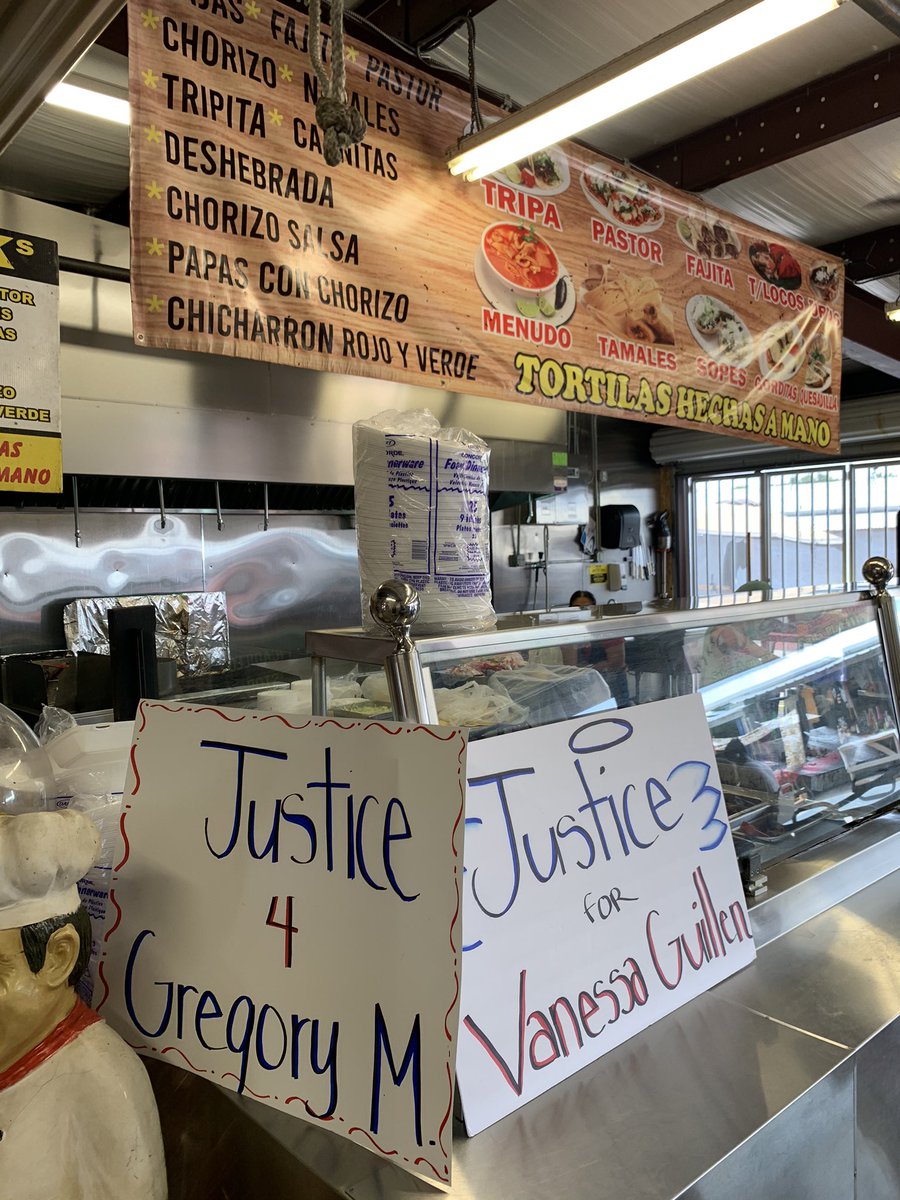 FAJITA
* PASTOR
* CHORIZO
* TRIPITA
* DESHEBRADA
* CHORIZO SALSA
* PAPAS CON CHORIZO
* CHICHARRON ROJO Y VERDE
TRIPA
PASTOR
FAJITA
MENUDO
TAMALES
SOPES
GORDITAS
QUESADILLA
TORTILAS HECHAS A MANO
VERDE
MANO
Justice
4
Gregory M.
Justice
FOR
Vanessa Guillen